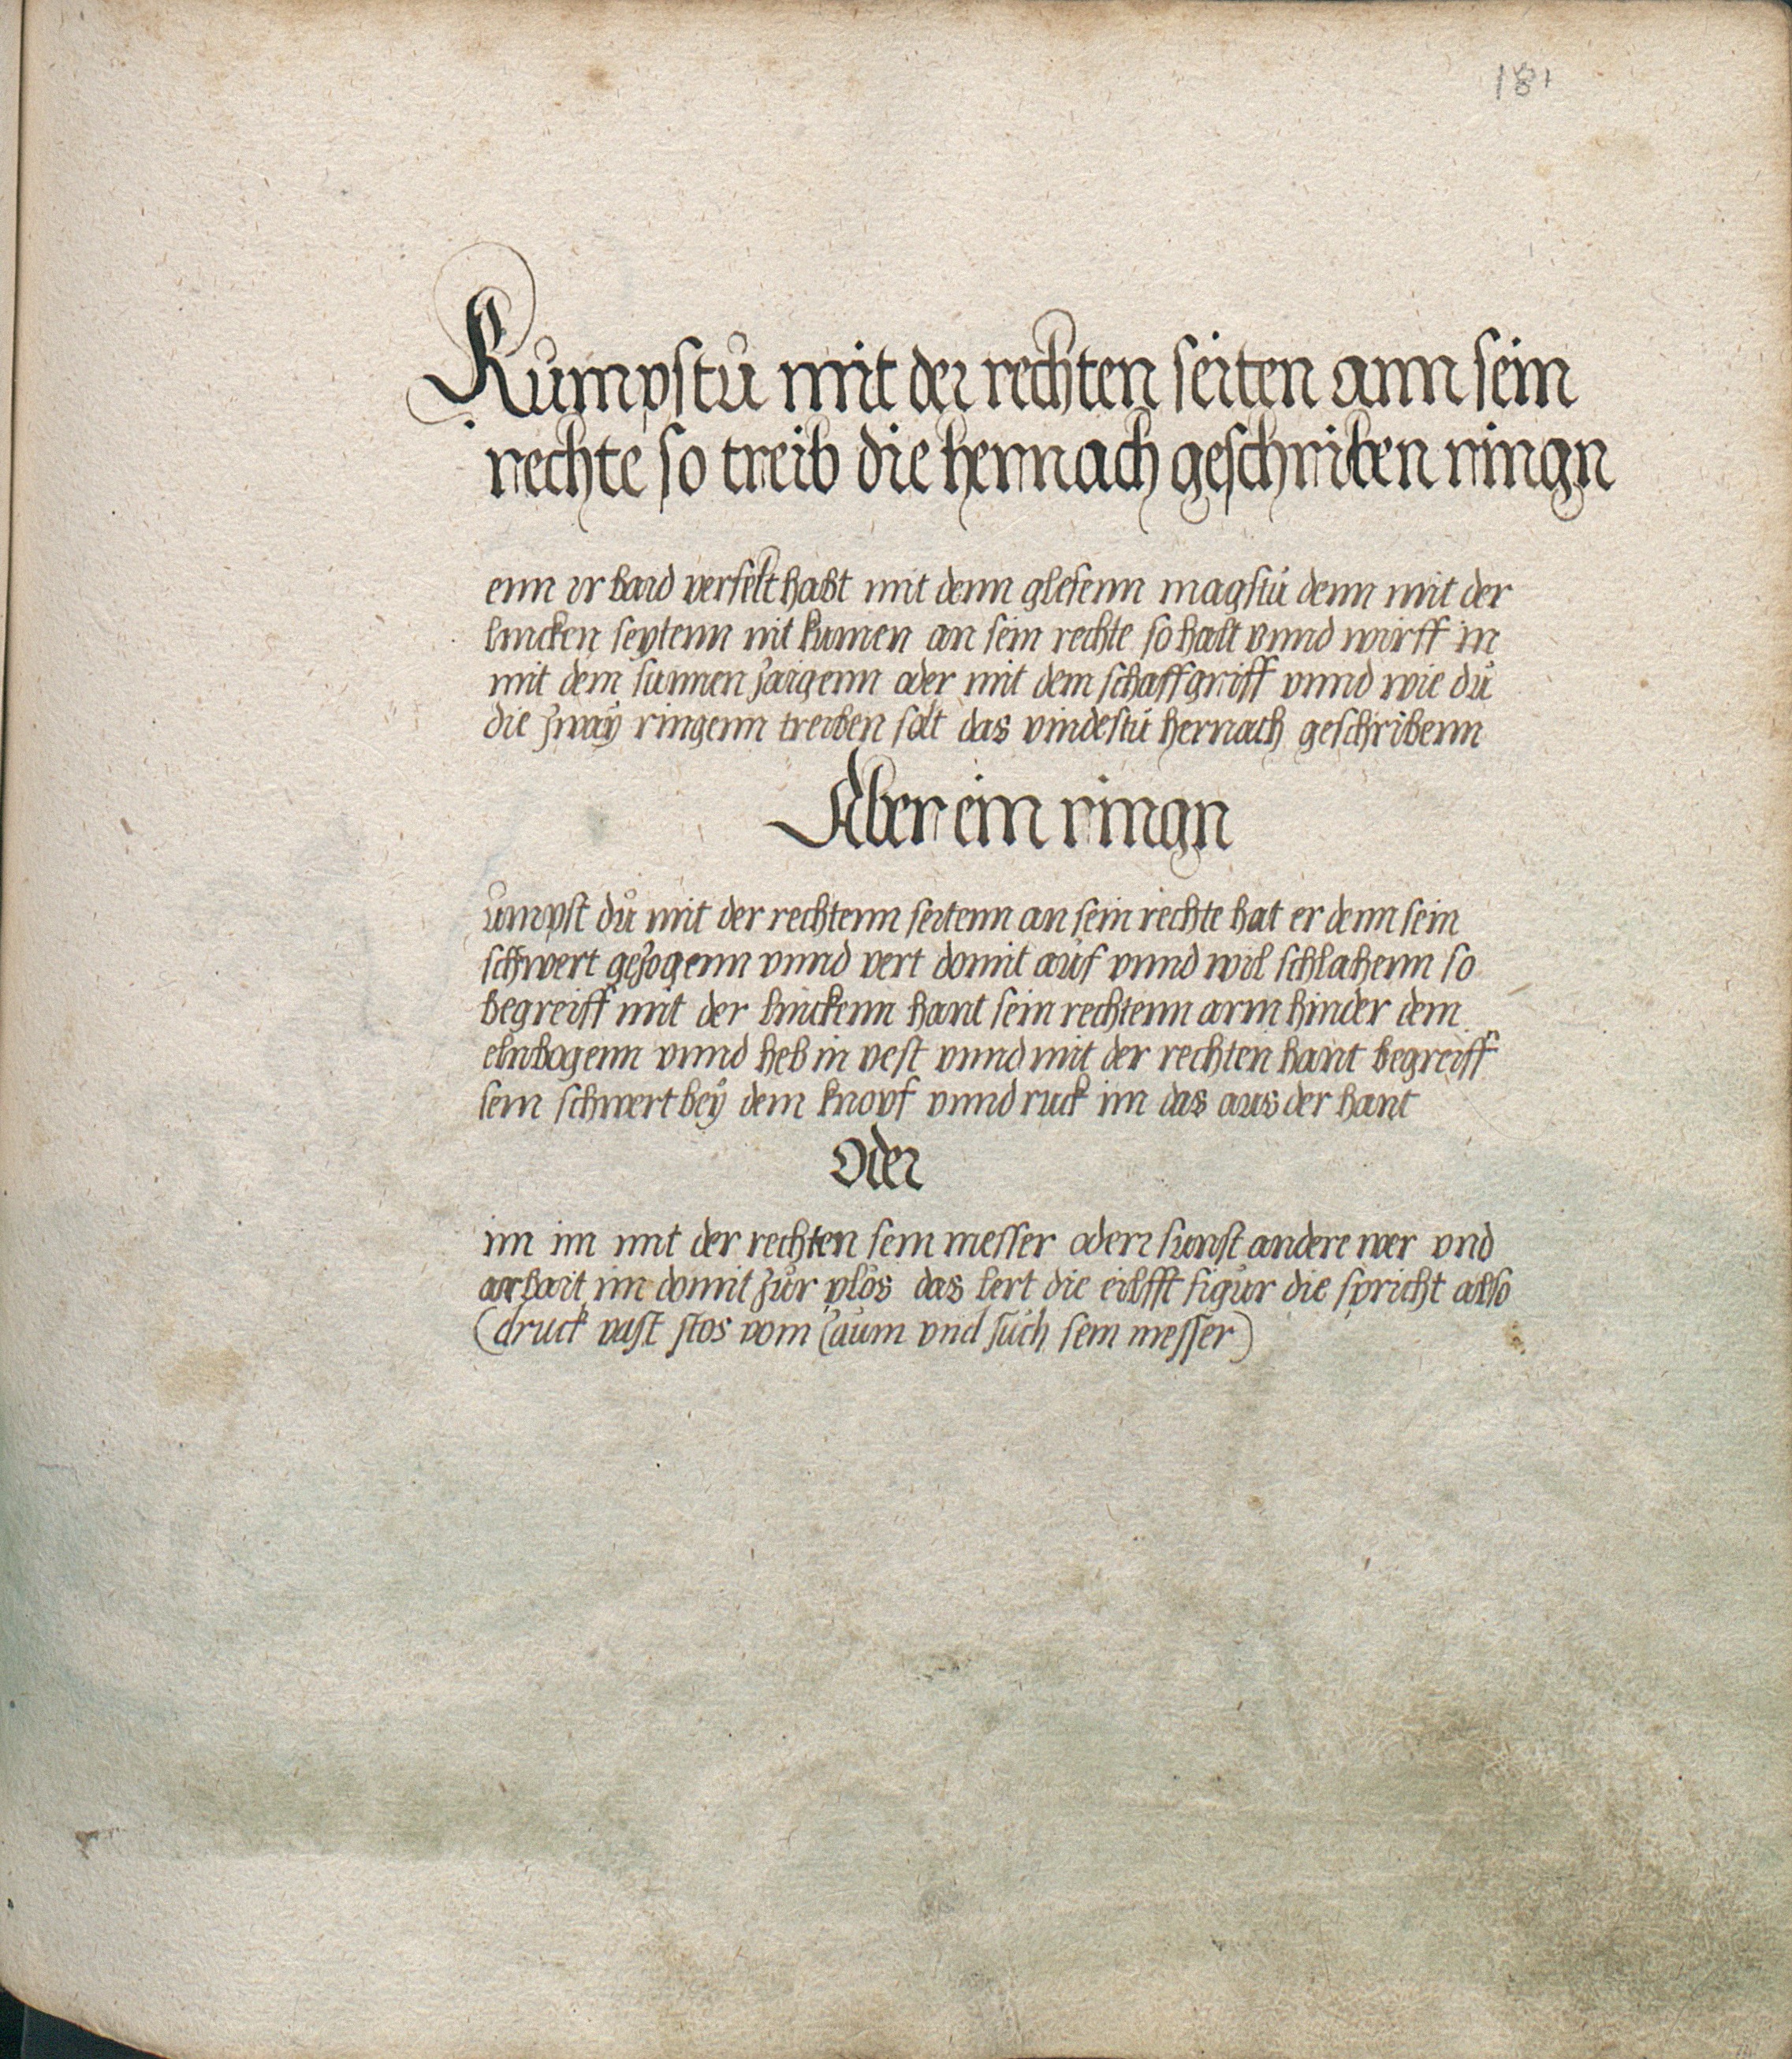 181
Kumpstu mit der rechten seiten ann sein
rechte so treib die hernnach geschriben ringn
enn ir baid verfelt habt mit denn glefenn magstu denn mit der
lincken seytenn nit kumen an sein rechte so halt vnnd wirff in
mit dem sunnen zaigenn oder mit dem schaffgriff vnnd wie dů
die zwaÿ ringenn treiben solt das vindestu hernach geschribenn
Aber ein ringn
umpst dů mit der rechtenn seitenn an sein rechte hat er denn sein
schwert gezogenn vnnd vert domit auf vnnd wil schlahenn so
begreiff mit der linckenn hant sein rechtenn arm hinder dem
elnbogenn vnnd heb in vest vnnd mit der rechten hant begreiff
sein schwert beÿ dem knopf vnnd ruck im das aus der hant
Oder
im im mit der rechten sein messer oder sunst andere wer vnd
arbait im domit zůr plos das lert die eilfft figůr die spricht also
(druck vast stos vom zaum vnd sůch sein messer)